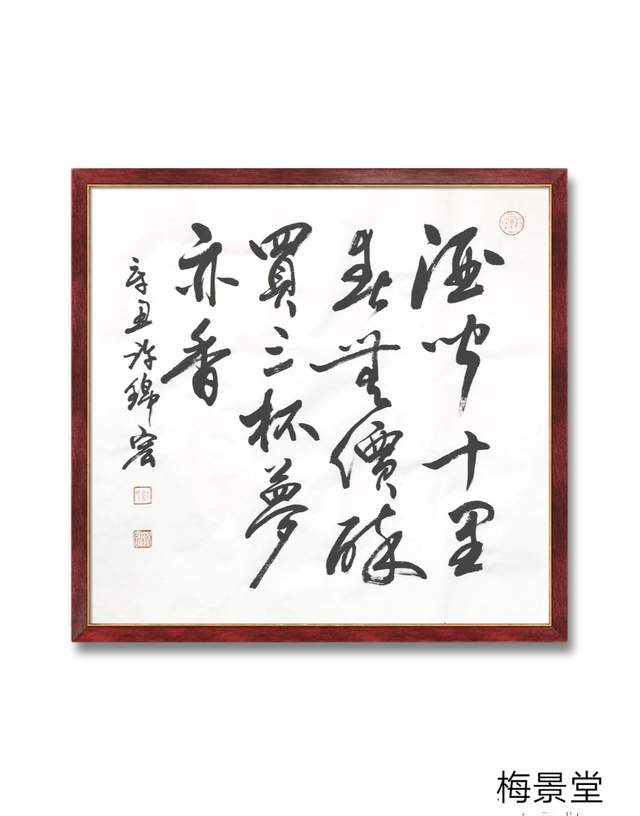 酒聞十里
春無價醉
買三杯夢
亦香
辛丑許錦宏
梅景堂